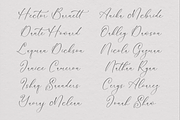 Hector Barnett
Dante Howard
Laguna Dickson
Janice Cameron
Isbey Saunders
Yarvey Melena
Aisha Mcbride
Oakley Dawson
Nicole Guzman
Nathan Ryan
Cruz Alvarez
Jonah Shaw